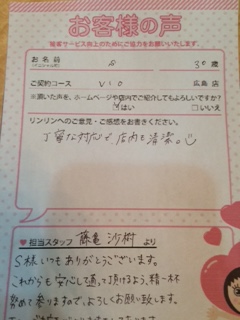 お客様の声
接客サービス向上のためにご協力をお願いいたします。
お名前 S 30歳
(イニシャル可)
ご契約コース VIO 広島店
※頂いた声を、ホームページや店内でご紹介してもよろしいですか?
☑はい □いいえ
リンリンへのご意見・ご感想をお書きください。
丁寧な対応で店内も清潔。
♥担当スタッフ 藤亀 沙樹 より
S様いつもありがとうございます。
これからも安心して通って頂けるよう、精一杯
努めて参りますので、よろしくお願い致します。